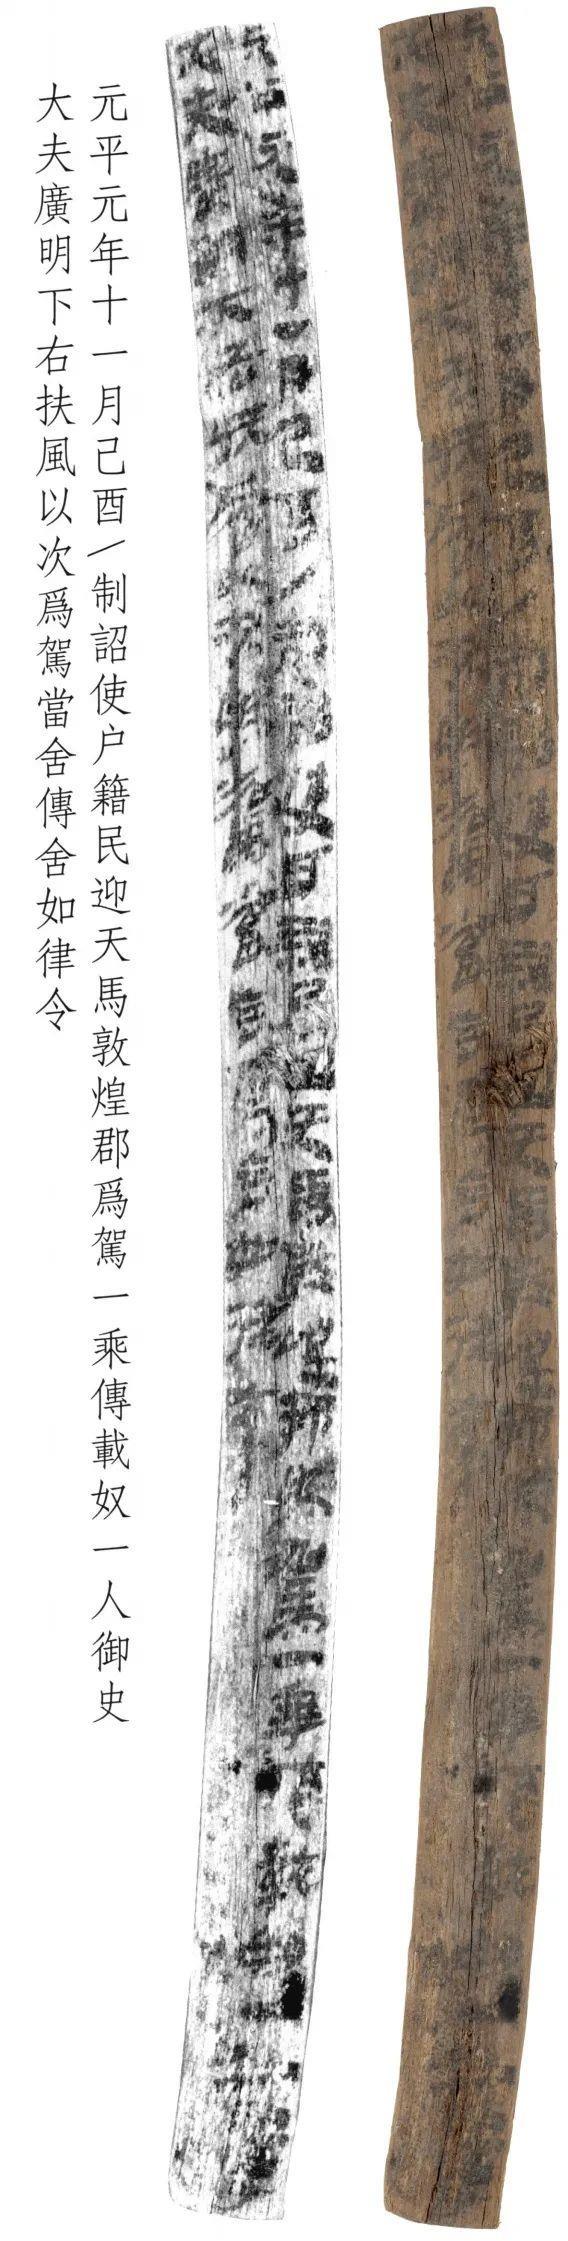 元平元年十一月己酉／制詔使户籍民迎天馬敦煌郡爲駕一乘傳載奴一人御史
大夫廣明下右扶風以次爲駕當舍傳舍如律令